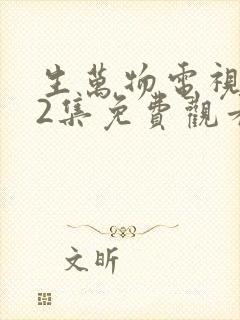 生萬物電視
2集免費觀看
文昕